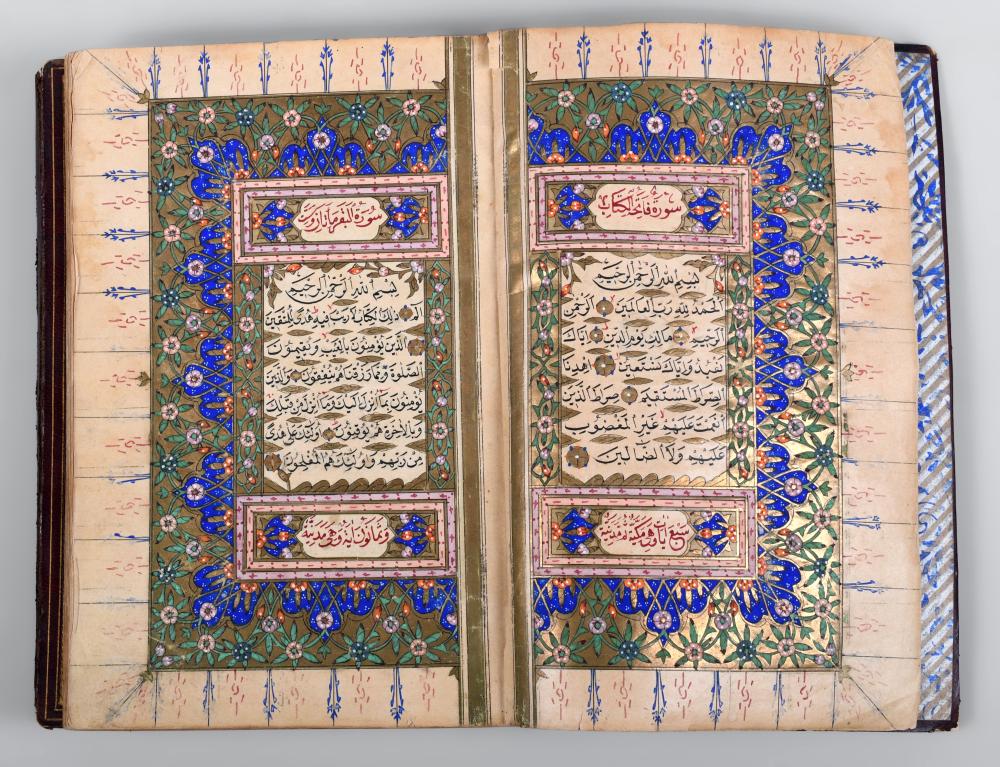 سُورَةُ فَاتِحَةِ الْكِتَابِ
بِسْمِ اللهِ الرَّحْمٰنِ الرَّحِيمِ
اَلْحَمْدُ لِلّٰهِ رَبِّ الْعَالَمِينَ اَلرَّحْمٰنِ
الرَّحِيمِ مَالِكِ يَوْمِ الدِّينِ اِيَّاكَ
نَعْبُدُ وَاِيَّاكَ نَسْتَعِينُ اِهْدِنَا
الصِّرَاطَ الْمُسْتَقِيمَ صِرَاطَ الَّذِينَ
اَنْعَمْتَ عَلَيْهِمْ غَيْرِ الْمَغْضُوبِ
عَلَيْهِمْ وَلَا الضَّالِّينَ
سبع ايات وهي مكية او مدنية
سُورَةُ الْبَقَر مِائَتَان وست
بِسْمِ اللهِ الرَّحْمٰنِ الرَّحِيمِ
الٓمٓ ذٰلِكَ الْكِتَابُ لَا رَيْبَ فِيهِ هُدًى لِلْمُتَّقِينَ
اَلَّذِينَ يُؤْمِنُونَ بِالْغَيْبِ وَيُقِيمُونَ
الصَّلٰوةَ وَمِمَّا رَزَقْنَاهُمْ يُنْفِقُونَ وَالَّذِينَ
يُؤْمِنُونَ بِمَا اُنْزِلَ اِلَيْكَ وَمَا اُنْزِلَ مِنْ قَبْلِكَ
وَبِالْاٰخِرَةِ هُمْ يُوقِنُونَ اُولٰئِكَ عَلٰى هُدًى
مِنْ رَبِّهِمْ وَاُولٰئِكَ هُمُ الْمُفْلِحُونَ
وثمانون اية وهي مدنية